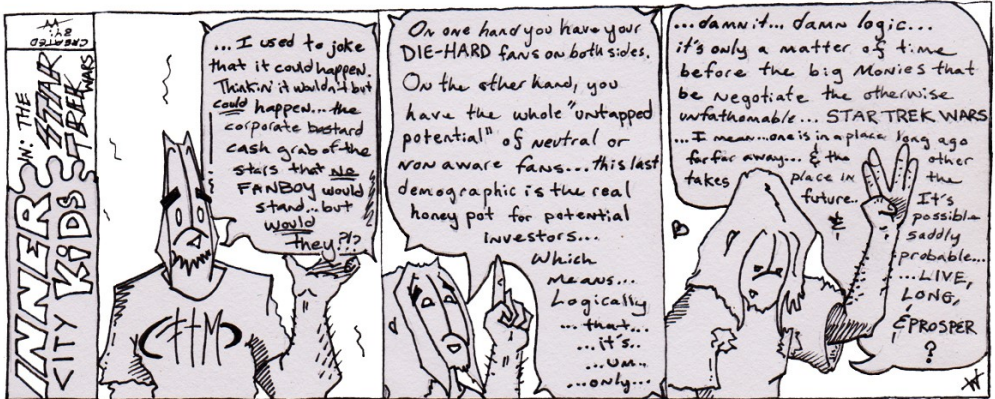 CREATED
BY:
W
IN: THE
STAR
TREK
WARS
INNER
CITY KIDS
...I used to joke
that it could happen.
Thinkin' it wouldn't but
could happen...the
corporate bastard
cash grab of the
stars that NO
FANBOY would
stand...but
would
they?!?
On one hand you have your
DIE-HARD fans on both sides.
On the other hand, you
have the whole "untapped
potential" of neutral or
non aware fans...this last
demographic is the real
honey pot for potential
investors...
Which
means...
Logically
...that...
...it's..
..um..
...only...
...damn it... damn logic...
it's only a matter of time
before the big Monies that
be negotiate the otherwise
unfathomable... STAR TREK WARS
...I mean...one is in a place long ago
far far away... & the other
takes place in the
future.. It's
&
possible
saddly
probable...
...LIVE,
LONG,
& PROSPER
?
W